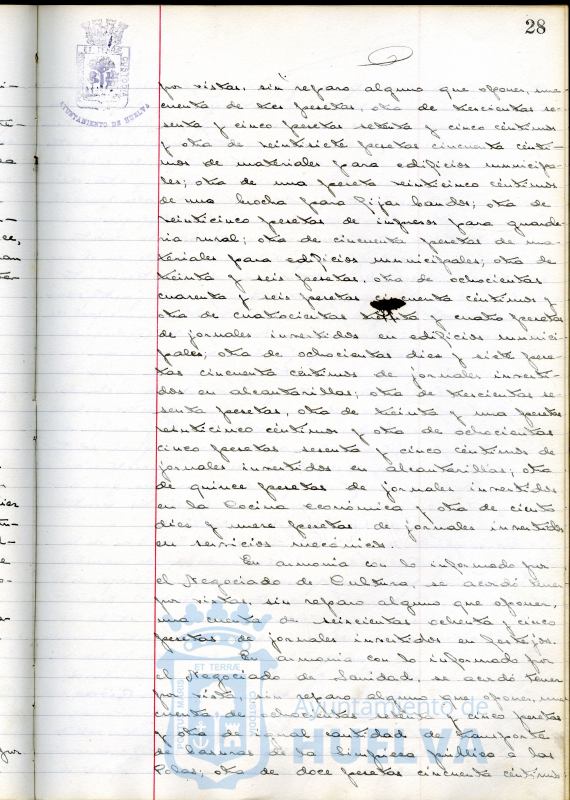 28
AYUNTAMIENTO DE HUELVA
por vistas, sin reparo alguno que oponer, una
cuenta de tres pesetas, otra de trescientas se-
senta y cinco pesetas setenta y cinco céntimos
y otra de veintisiete pesetas cincuenta cénti-
mos de materiales para edificios municipa-
les; otra de una peseta veinticinco céntimos
de una brocha para fijar bandos; otra de
veinticinco pesetas de impresos para guarde-
ria rural; otra de cincuenta pesetas de ma-
teriales para edificios municipales; otra de
treinta y seis pesetas, otra de ochocientas
cuarenta y seis pesetas cincuenta céntimos y
otra de cuatrocientas y cuatro pesetas
de jornales invertidos en edificios munici-
pales; otra de ochocientas dies y siete pese-
tas cincuenta céntimos de jornales inverti-
dos en alcantarillas; otra de trescientas se-
senta pesetas, otra de treinta y una pesetas
veinticinco céntimos y otra de ochocientas
cinco pesetas sesenta y cinco céntimos de
jornales invertidos en alcantarillas; otra
de quince pesetas de jornales invertidos
en la Cocina económica y otra de ciento
dies y nueve pesetas de jornales invertidos
en servicios mecánicos.
En armonia con lo informado por
el Negociado de Cultura, se acordó tener
por vistas, sin reparo alguno que oponer,
una cuenta de seiscientas ochenta y cinco
pesetas de jornales invertidos en festejos.
En armonia con lo informado por
el Negociado de Sanidad, se acordó tener
por vista, sin reparo alguno que oponer, una
cuenta de ochocientas setenta y cinco pesetas
y otra de igual cantidad de transporte
de basuras de la limpieza pública a las
Polas; otra de doce pesetas cincuenta céntimos
PORTUS MARIS ET TERRÆ CUSTODIA
Ayuntamiento de
HUELVA